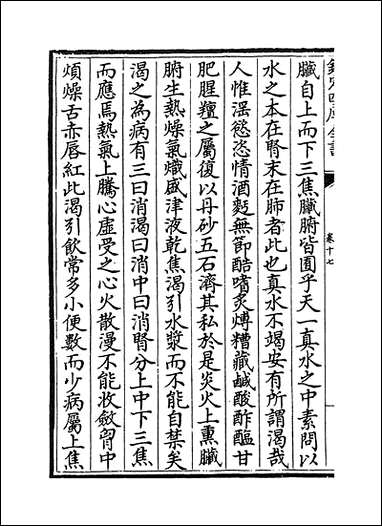 欽定四庫全書
卷十七
臟自上而下三焦臟腑皆囿乎天一真水之中素問以
水之本在腎末在肺者此也真水不竭安有所謂渴哉
人惟淫慾恣情酒麪無節酷嗜炙煿糟藏鹹酸酢醢甘
肥腥羶之屬復以丹砂五石濟其私於是炎火上熏臟
腑生熱燥氣熾盛津液乾焦渴引水漿而不能自禁矣
渴之為病有三曰消渴曰消中曰消腎分上中下三焦
而應焉熱氣上騰心虛受之心火散漫不能收斂胷中
煩燥舌赤唇紅此渴引飲常多小便數而少病屬上焦